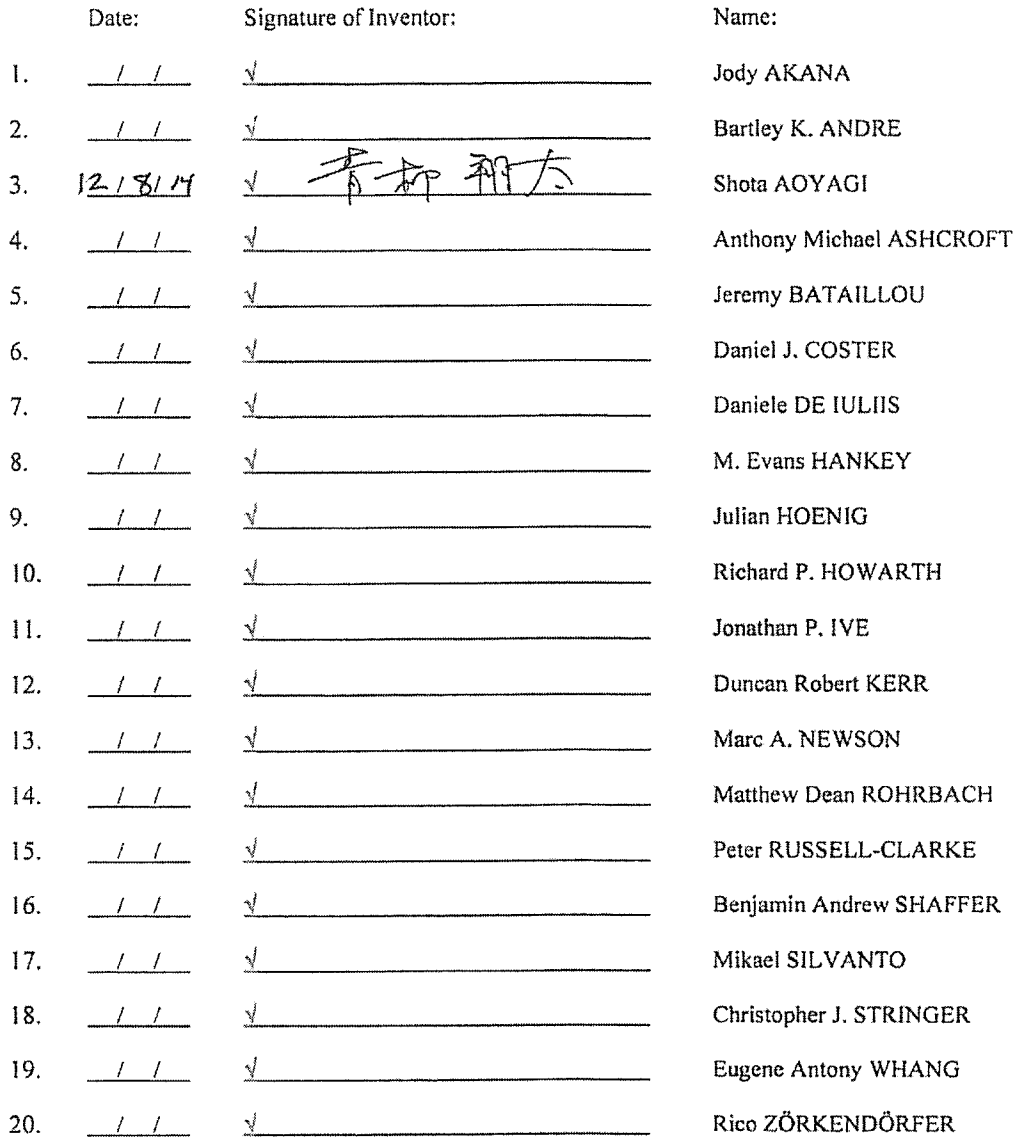 Date: Signature of Inventor: Name:
1. / / √ Jody AKANA
2. / / √ Bartley K. ANDRE
3. 12/8/14 √ 青柳 翔太 Shota AOYAGI
4. / / √ Anthony Michael ASHCROFT
5. / / √ Jeremy BATAILLOU
6. / / √ Daniel J. COSTER
7. / / √ Daniele DE IULIIS
8. / / √ M. Evans HANKEY
9. / / √ Julian HOENIG
10. / / √ Richard P. HOWARTH
11. / / √ Jonathan P. IVE
12. / / √ Duncan Robert KERR
13. / / √ Marc A. NEWSON
14. / / √ Matthew Dean ROHRBACH
15. / / √ Peter RUSSELL-CLARKE
16. / / √ Benjamin Andrew SHAFFER
17. / / √ Mikael SILVANTO
18. / / √ Christopher J. STRINGER
19. / / √ Eugene Antony WHANG
20. / / √ Rico ZÖRKENDÖRFER